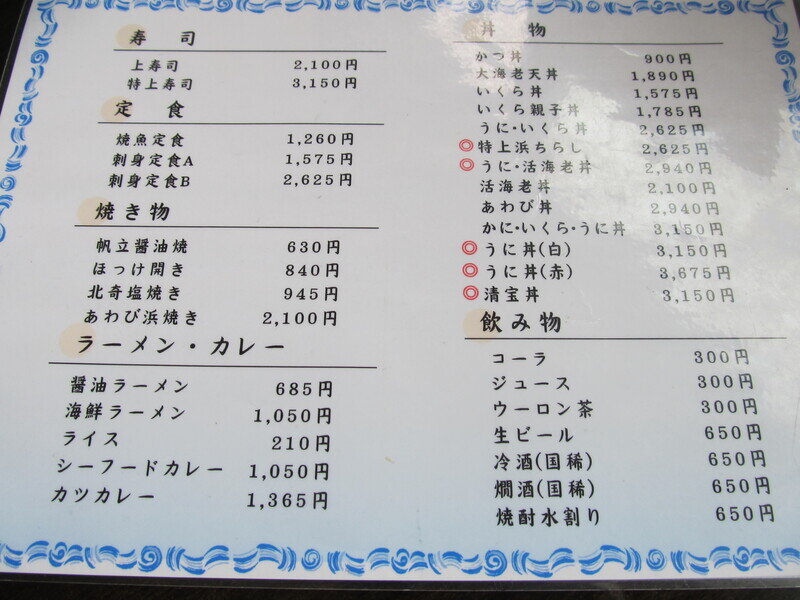 寿司
上寿司 2,100円
特上寿司 3,150円
定食
焼魚定食 1,260円
刺身定食A 1,575円
刺身定食B 2,625円
焼き物
帆立醤油焼 630円
ほっけ開き 840円
北奇塩焼き 945円
あわび浜焼き 2,100円
ラーメン・カレー
醤油ラーメン 685円
海鮮ラーメン 1,050円
ライス 210円
シーフードカレー 1,050円
カツカレー 1,365円
丼物
かつ丼 900円
大海老天丼 1,890円
いくら丼 1,575円
いくら親子丼 1,785円
うに・いくら丼 2,625円
◎特上浜ちらし 2,625円
◎うに・活海老丼 2,940円
活海老丼 2,100円
あわび丼 2,940円
かに・いくら・うに丼 3,150円
◎うに丼(白) 3,150円
◎うに丼(赤) 3,675円
◎清宝丼 3,150円
飲み物
コーラ 300円
ジュース 300円
ウーロン茶 300円
生ビール 650円
冷酒(国稀) 650円
燗酒(国稀) 650円
焼酎水割り 650円